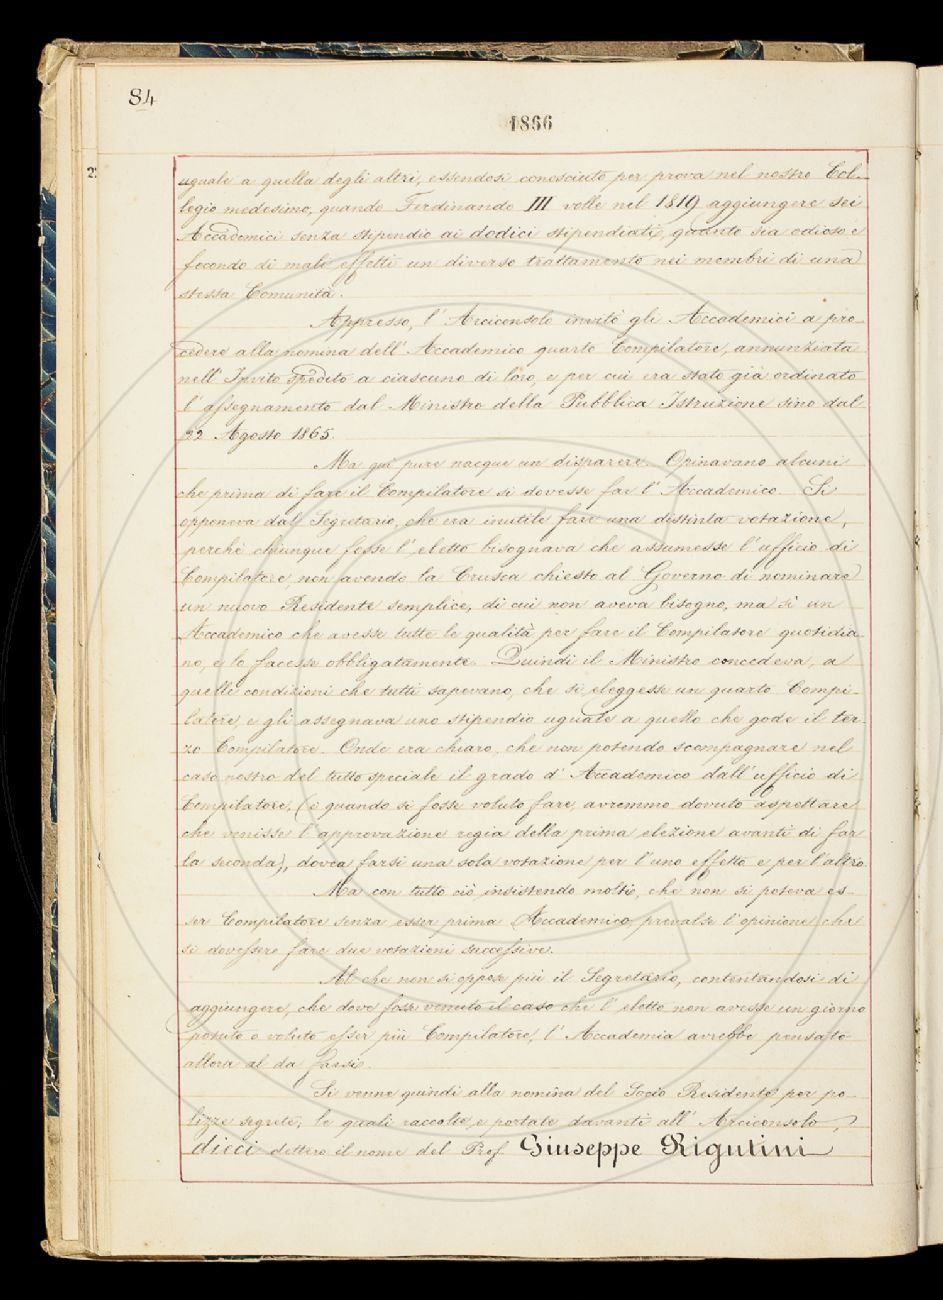 84
1866
uguale a quella degli altri, essendosi conosciuto per prova nel nostro Col-
legio medesimo, quando Ferdinando III volle nel 1819 aggiungere sei
Accademici senza stipendio ai dodici stipendiati, quanto sia odioso e
fecondo di mali effetti un diverso trattamento nei membri di una
stessa Comunità.
Appresso, l'Arciconsolo invitò gli Accademici a pro-
cedere alla nomina dell'Accademico quarto Compilatore, annunziata
nell'Invito spedito a ciascuno di loro, e per cui era stato già ordinato
l'assegnamento dal Ministro della Pubblica Istruzione sino dal
22 Agosto 1865.
Ma qui pure nacque un disparere. Opinavano alcuni
che prima di fare il Compilatore si dovesse far l'Accademico. Si
opponeva dal Segretario, che era inutile fare una distinta votazione,
perchè chiunque fosse l'eletto bisognava che assumesse l'ufficio di
Compilatore, non avendo la Crusca chiesto al Governo di nominare
un nuovo Residente semplice, di cui non aveva bisogno, ma sì un
Accademico che avesse tutte le qualità per fare il Compilatore quotidia-
no, e lo facesse obbligatamente. Quindi il Ministro concedeva, a
quelle condizioni che tutti sapevano, che si eleggesse un quarto Compi-
latore, e gli assegnava uno stipendio uguale a quello che gode il ter-
zo Compilatore. Onde era chiaro, che non potendo scompagnare nel
caso nostro del tutto speciale il grado d'Accademico dall'ufficio di
Compilatore, (e quando si fosse voluto fare, avremmo dovuto aspettare
che venisse l'approvazione regia della prima elezione avanti di far
la seconda), dovea farsi una sola votazione per l'uno effetto e per l'altro.
Ma con tutto ciò, insistendo molti, che non si poteva es-
ser Compilatore senza esser prima Accademico, prevalse l'opinione che
si dovessero fare due votazioni successive.
Al che non si oppose più il Segretario, contentandosi di
aggiungere, che dove fosse venuto il caso che l'eletto non avesse un giorno
potuto o voluto esser più Compilatore, l'Accademia avrebbe pensato
allora al da farsi.
Si venne quindi alla nomina del Socio Residente per po-
lizze segrete, le quali raccolte, e portate davanti all'Arciconsolo,
dieci dettero il nome del Prof. Giuseppe Rigutini